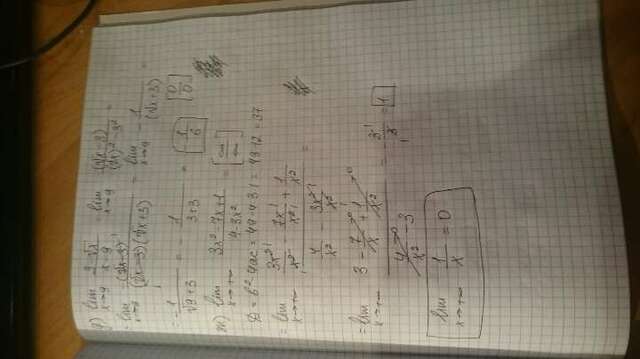 е) lim x→9 3-√x / x-9 lim x→9 (√x-3) / (√x)²-3² =
= lim x→9 (√x-3)¹ / (√x-3)(√x+3) = lim x→9 - 1 / (√x+3) =
= - 1 / √9+3 = - 1 / 3+3 = - 1/6 [0/0]
ж) lim x→∞ 3x²-7x+1 / 4-3x² = [∞/∞]
D = b²-4ac = 49-4·3·1 = 49-12 = 37
= lim x→∞ 3x²/x² - 7x/x² + 1/x² / 4/x² - 3x²/x² =
= lim x→∞ 3 - 7/x + 1/x² / 4/x² - 3 = - 3/3 = 1
lim x→∞ 1/x = 0